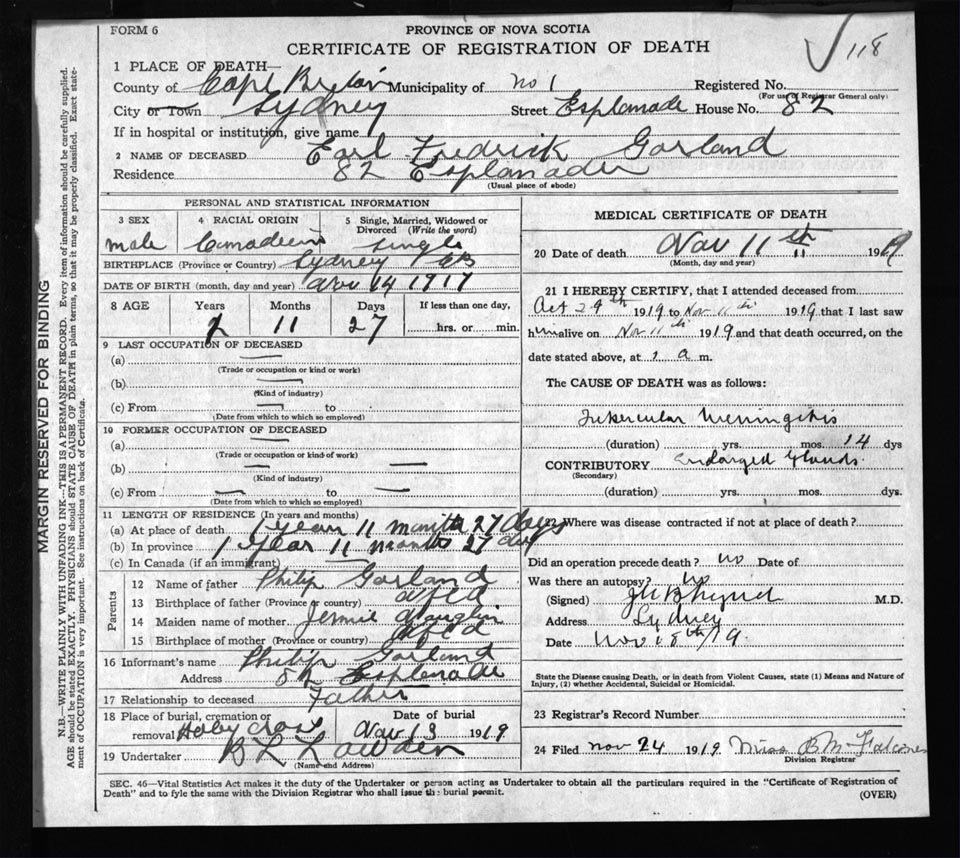 FORM 6
PROVINCE OF NOVA SCOTIA
CERTIFICATE OF REGISTRATION OF DEATH
118
1 PLACE OF DEATH—
County of Cape Breton Municipality of No 1 Registered No.
(For use of Registrar General only)
City or Town Sydney Street Esplanade House No. 82
If in hospital or institution, give name
2 NAME OF DECEASED Earl Fredrick Garland
Residence 82 Esplanade
(Usual place of abode)
PERSONAL AND STATISTICAL INFORMATION
3 SEX 4 RACIAL ORIGIN 5 Single, Married, Widowed or Divorced (Write the word)
male Canadian single
BIRTHPLACE (Province or Country) Sydney CB
DATE OF BIRTH (month, day and year) Nov 14 1917
8 AGE Years Months Days If less than one day,
11 27 hrs. or min.
9 LAST OCCUPATION OF DECEASED
(a)
(Trade or occupation or kind or work)
(b)
(Kind of industry)
(c) From to
(Date from which to which so employed)
10 FORMER OCCUPATION OF DECEASED
(a)
(Trade or occupation or kind of work)
(b)
(Kind of industry)
(c) From to
(Date from which to which so employed)
11 LENGTH OF RESIDENCE (In years and months)
(a) At place of death 1 year 11 months 27 days
(b) In province 1 Year 11 months 27 day
(c) In Canada (if an immigrant)
Parents
12 Name of father Philip Garland
13 Birthplace of father (Province or country) Nfld
14 Maiden name of mother Jennie
15 Birthplace of mother (Province or country) Nfld
16 Informant's name Philip Garland
Address Esplanade
17 Relationship to deceased Father
18 Place of burial, cremation or removal Holy Cross Date of burial Nov 13 1919
19 Undertaker B L Lowden
(Name and Address)
MEDICAL CERTIFICATE OF DEATH
20 Date of death Nov 11th 11 1919
(Month, day and year)
21 I HEREBY CERTIFY, that I attended deceased from
Oct 29th 1919 to Nov 11th 1919 that I last saw
him alive on Nov 11th 1919 and that death occurred, on
date stated above, at 1 a m.
The CAUSE OF DEATH was as follows:
Tubercular Meningitis
(duration) yrs. mos. 14 dys
CONTRIBUTORY Enlarged Glands.
(Secondary)
(duration) yrs. mos. dys.
Where was disease contracted if not at place of death?
Did an operation precede death? no Date of
Was there an autopsy? no
(Signed) M.D.
Address Sydney
Date Nov /19
State the Disease causing Death, or in death from Violent Causes, state (1) Means and Nature of
Injury, (2) whether Accidental, Suicidal or Homicidal.
23 Registrar's Record Number
24 Filed Nov 24 1919 Miss B M
Division Registrar
SEC. 46—Vital Statistics Act makes it the duty of the Undertaker or person acting as Undertaker to obtain all the particulars required in the "Certificate of Registration of
Death" and to fyle the same with the Division Registrar who shall issue the burial permit.
(OVER)
MARGIN RESERVED FOR BINDING
N.B.—WRITE PLAINLY WITH UNFADING INK—THIS IS A PERMANENT RECORD. Every item of information should be carefully supplied.
AGE should be stated EXACTLY. PHYSICIANS should STATE CAUSE OF DEATH in plain terms, so that it may be properly classified. Exact state-
ment of OCCUPATION is very important. See instructions on back of Certificate.